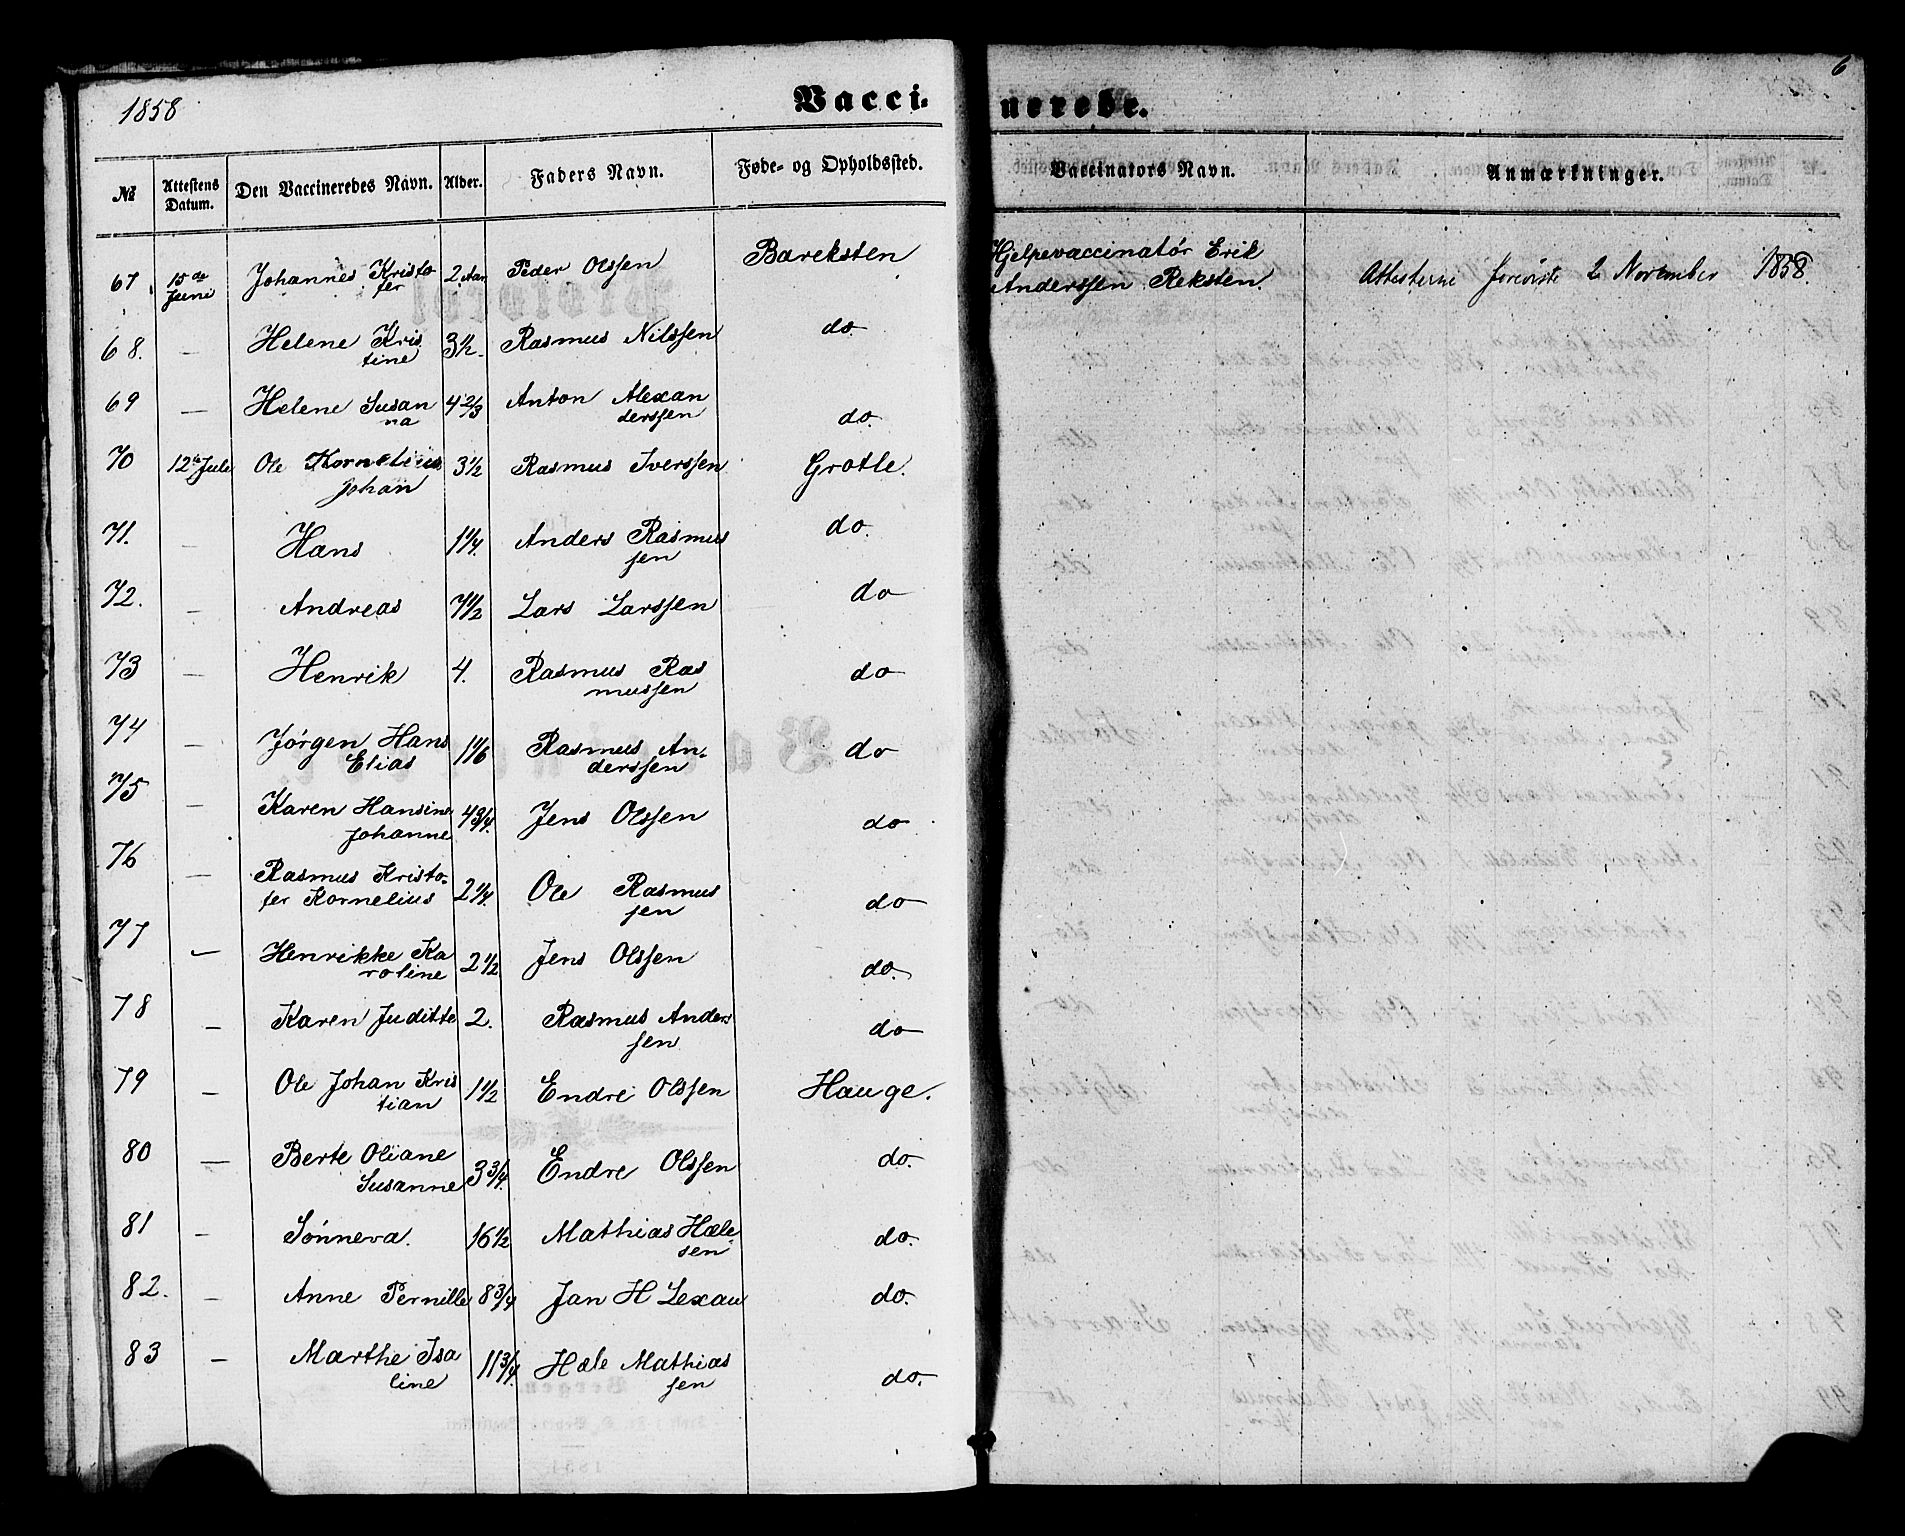 1858 Vaccinerede. 6
№ Attestens Datum. Den Vaccineredes Navn. Alder. Faders Navn. Føde- og Opholdssted. Vaccinators Navn. Anmærkninger.
67 15de Juni Johannes Kristofer 2 Aar Peder Olssen Bareksten Hjelpevaccinatór Erik Anderssen Reksten. Attesterne foreviste 2 November 1858.
68. — Helene Kristine 3 1/2 Rasmus Nilssen do
69 — Helene Susanna 4 2/3 Anton Alexanderssen do.
70 12te Jule Ole Kornelius Johan 3 1/2 Rasmus Iverssen Grotle.
71. — Hans 1 1/4. Anders Rasmussen do.
72. — Andreas 7 1/2 Lars Larssen do
73 — Henrik 4. Rasmus Rasmussen do
74 — Jórgen Hans Elias 1 1/6 Rasmus Anderssen do
75 — Karen Hansine Johanne 4 3/4. Jens Olssen do
76 — Rasmus Kristofer Kornelius 2 1/4. Ole Rasmussen do
77 — Henrikke Karoline 2 1/2 Jens Olssen do.
78 — Karen Juditte 2. Rasmus Anderssen do
79 — Ole Johan Kristian 1 1/2 Endre Olssen Hauge.
80 — Berte Oliane Susanne 3 3/4. Endre Olssen do.
81 — Sónneva. 16 1/2 Mathias Hælesen do.
82. — Anne Pernille 8 3/4 Jan H Lexau do.
83 — Marthe Isaline 11 3/4. Hæle Mathiassen do.